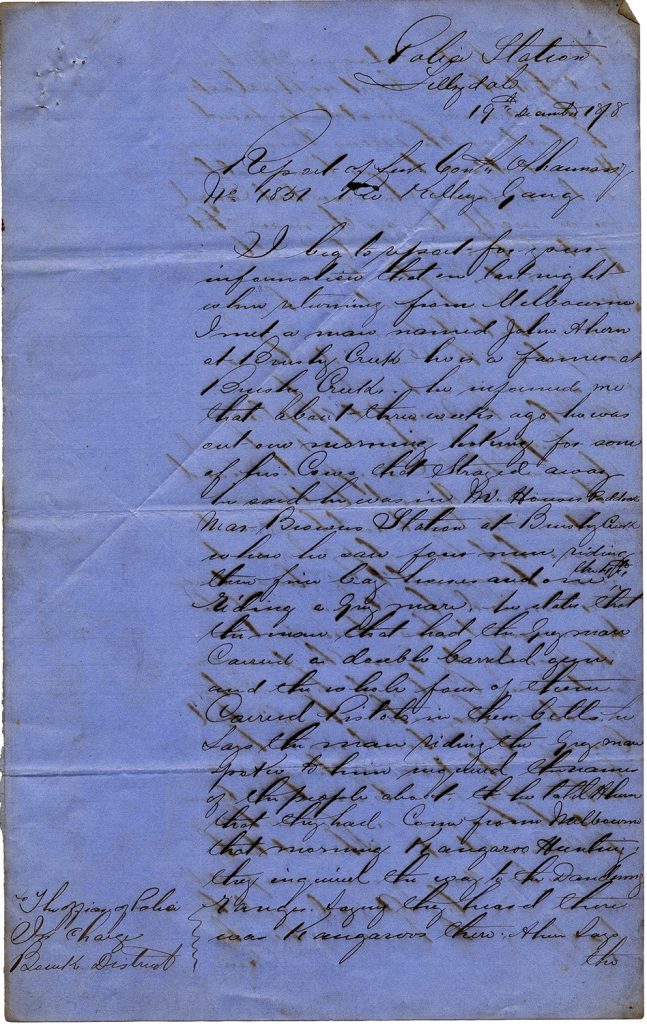 Police Station
Lillydale
19th December 1878
Report of first Const
No 1831 re Kelly Gang
I beg to report for your
information that on last night
when returning from Melbourne
I met a man named John Ahern
at Brushy Creek he is a farmer at
Brushy Creek. he informed me
that about three weeks ago he was
out one morning looking for some
of his Cows that Strayed away
he said he was in Mr Paddock
near Browns Station at Brushy Creek
when he saw four men riding
three fine bay horses and one
riding a Grey mare, he states that
the man that had the Grey mare
Carried a double barreled gun
and the whole four of them
Carried Pistols in their belts. he
Says the man riding the Grey mare
Spoke to him inquired the names
of the people about. & he told Ahern
that they had Come from Melbourne
that morning Kangaroo Hunting
they inquired the way to the Dandenong
Ranges. Saying they heard there
was Kangaroos there. Ahern Says
the
To The Officer of Police
In Charge
Bourke District